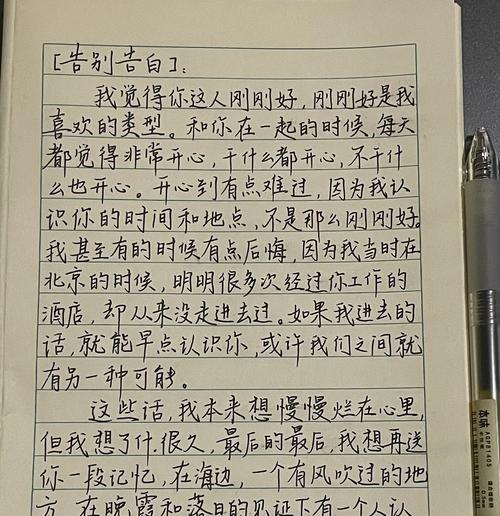 [告别告白]：
我觉得你这人刚刚好，刚刚好是我
喜欢的类型。和你在一起的时候，每天
都觉得非常开心，干什么都开心，不干什
么也开心。开心到有点难过，因为我认
识你的时间和地点，不是那么刚刚好。
我甚至有的时候有点后悔，因为我当时在
北京的时候，明明很多次经过你工作的
酒店，却从来没走进去过。如果我进去的
话，就能早点认识你，或许我们之间就
有另一种可能。
这些话，我本来想慢慢烂在心里，
但我想了什.很久，最后的最后，我想再送
你一段记忆，在海边，一个有风吹过的地
方，在晚霞和落日的见证下有一个人认
本味
AGPB1405
0.5mm